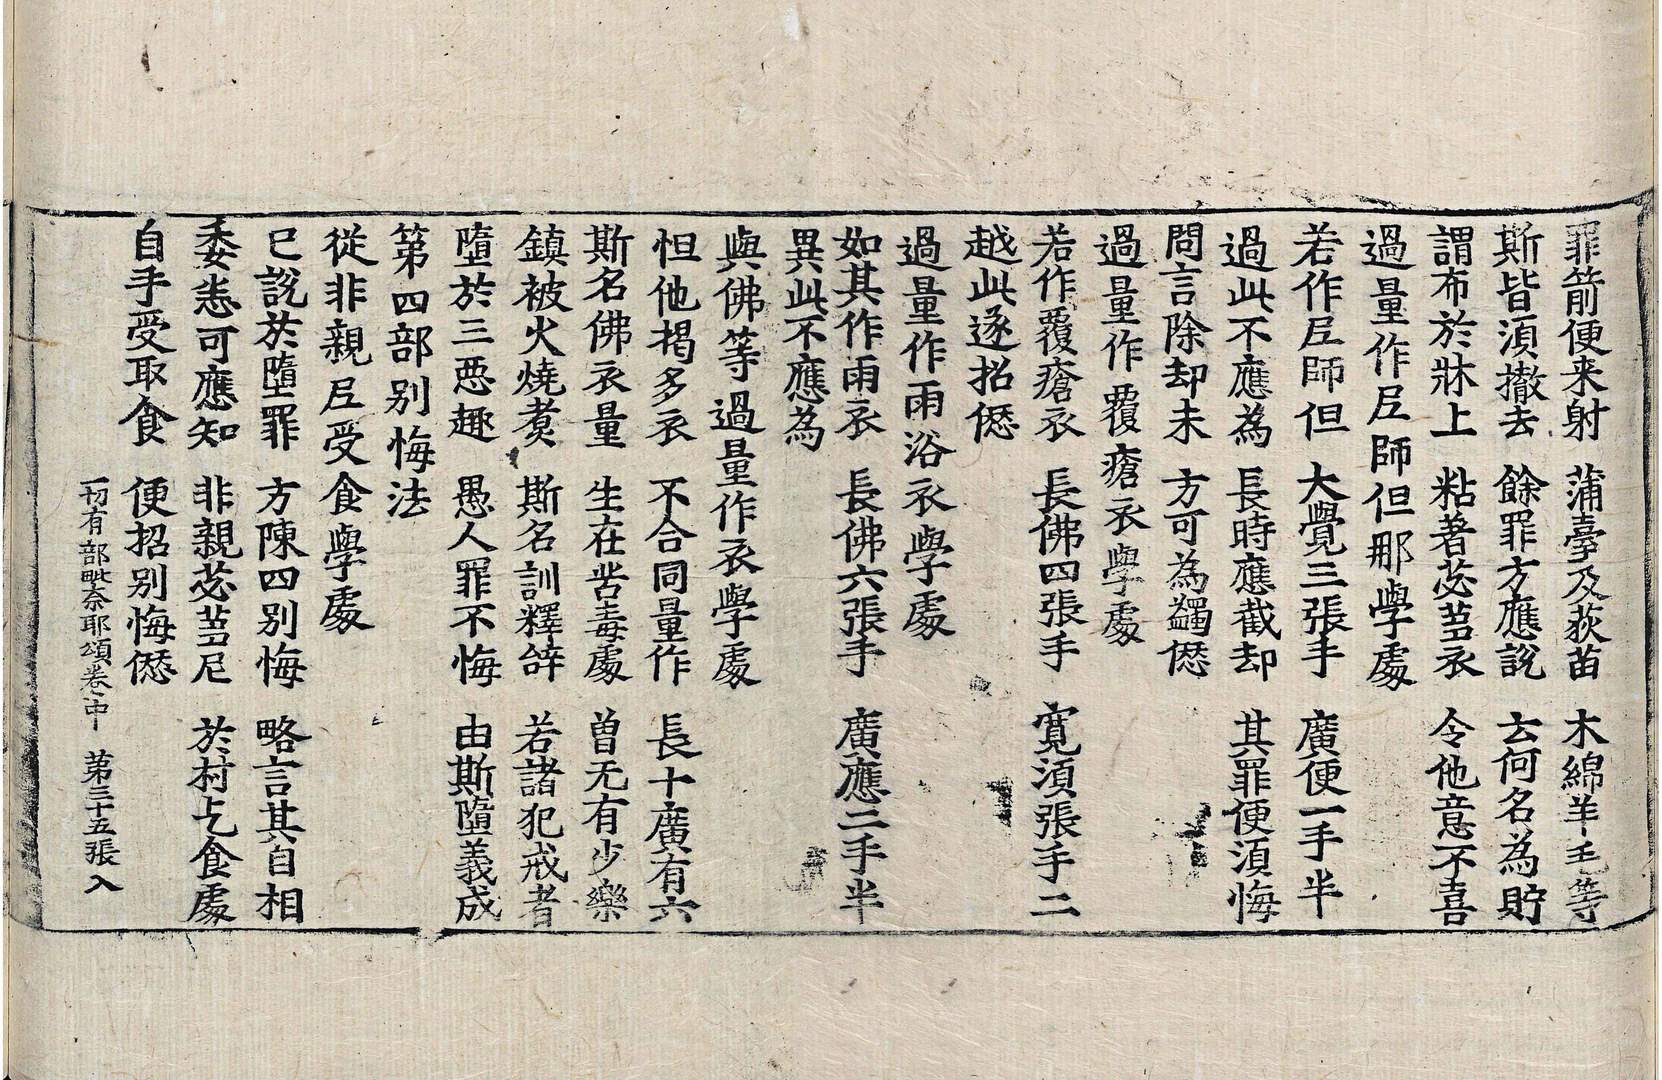 罪箭便来射　蒲臺及荻苗　木綿羊毛等
斯皆須撤去　餘罪方應說　云何名為貯
謂布於牀上　粘著苾芻衣　令他意不喜
過量作尼師但那學處
若作尼師但　大覺三張手　廣便一手半
過此不應為　長時應截却　其罪便須悔
問言除却未　方可為蠲愆
過量作覆瘡衣學處
若作覆瘡衣　長佛四張手　寬須張手二
越此遂招愆
過量作雨浴衣學處
如其作雨衣　長佛六張手　廣應二手半
異此不應為
與佛等過量作衣學處
怛他揭多衣　不合同量作　長十廣有六
斯名佛衣量　生在苦毒處　曾无有少樂
鎮被火燒煑　斯名訓釋辝　若諸犯戒者
墮於三惡趣　愚人罪不悔　由斯墮義成
第四部別悔法
從非親尼受食學處
已說於墮罪　方陳四別悔　略言其自相
委悉可應知　非親苾芻尼　於村乞食處
自手受取食　便招別悔愆
一切有部毗奈耶頌卷中　第三十五張　入